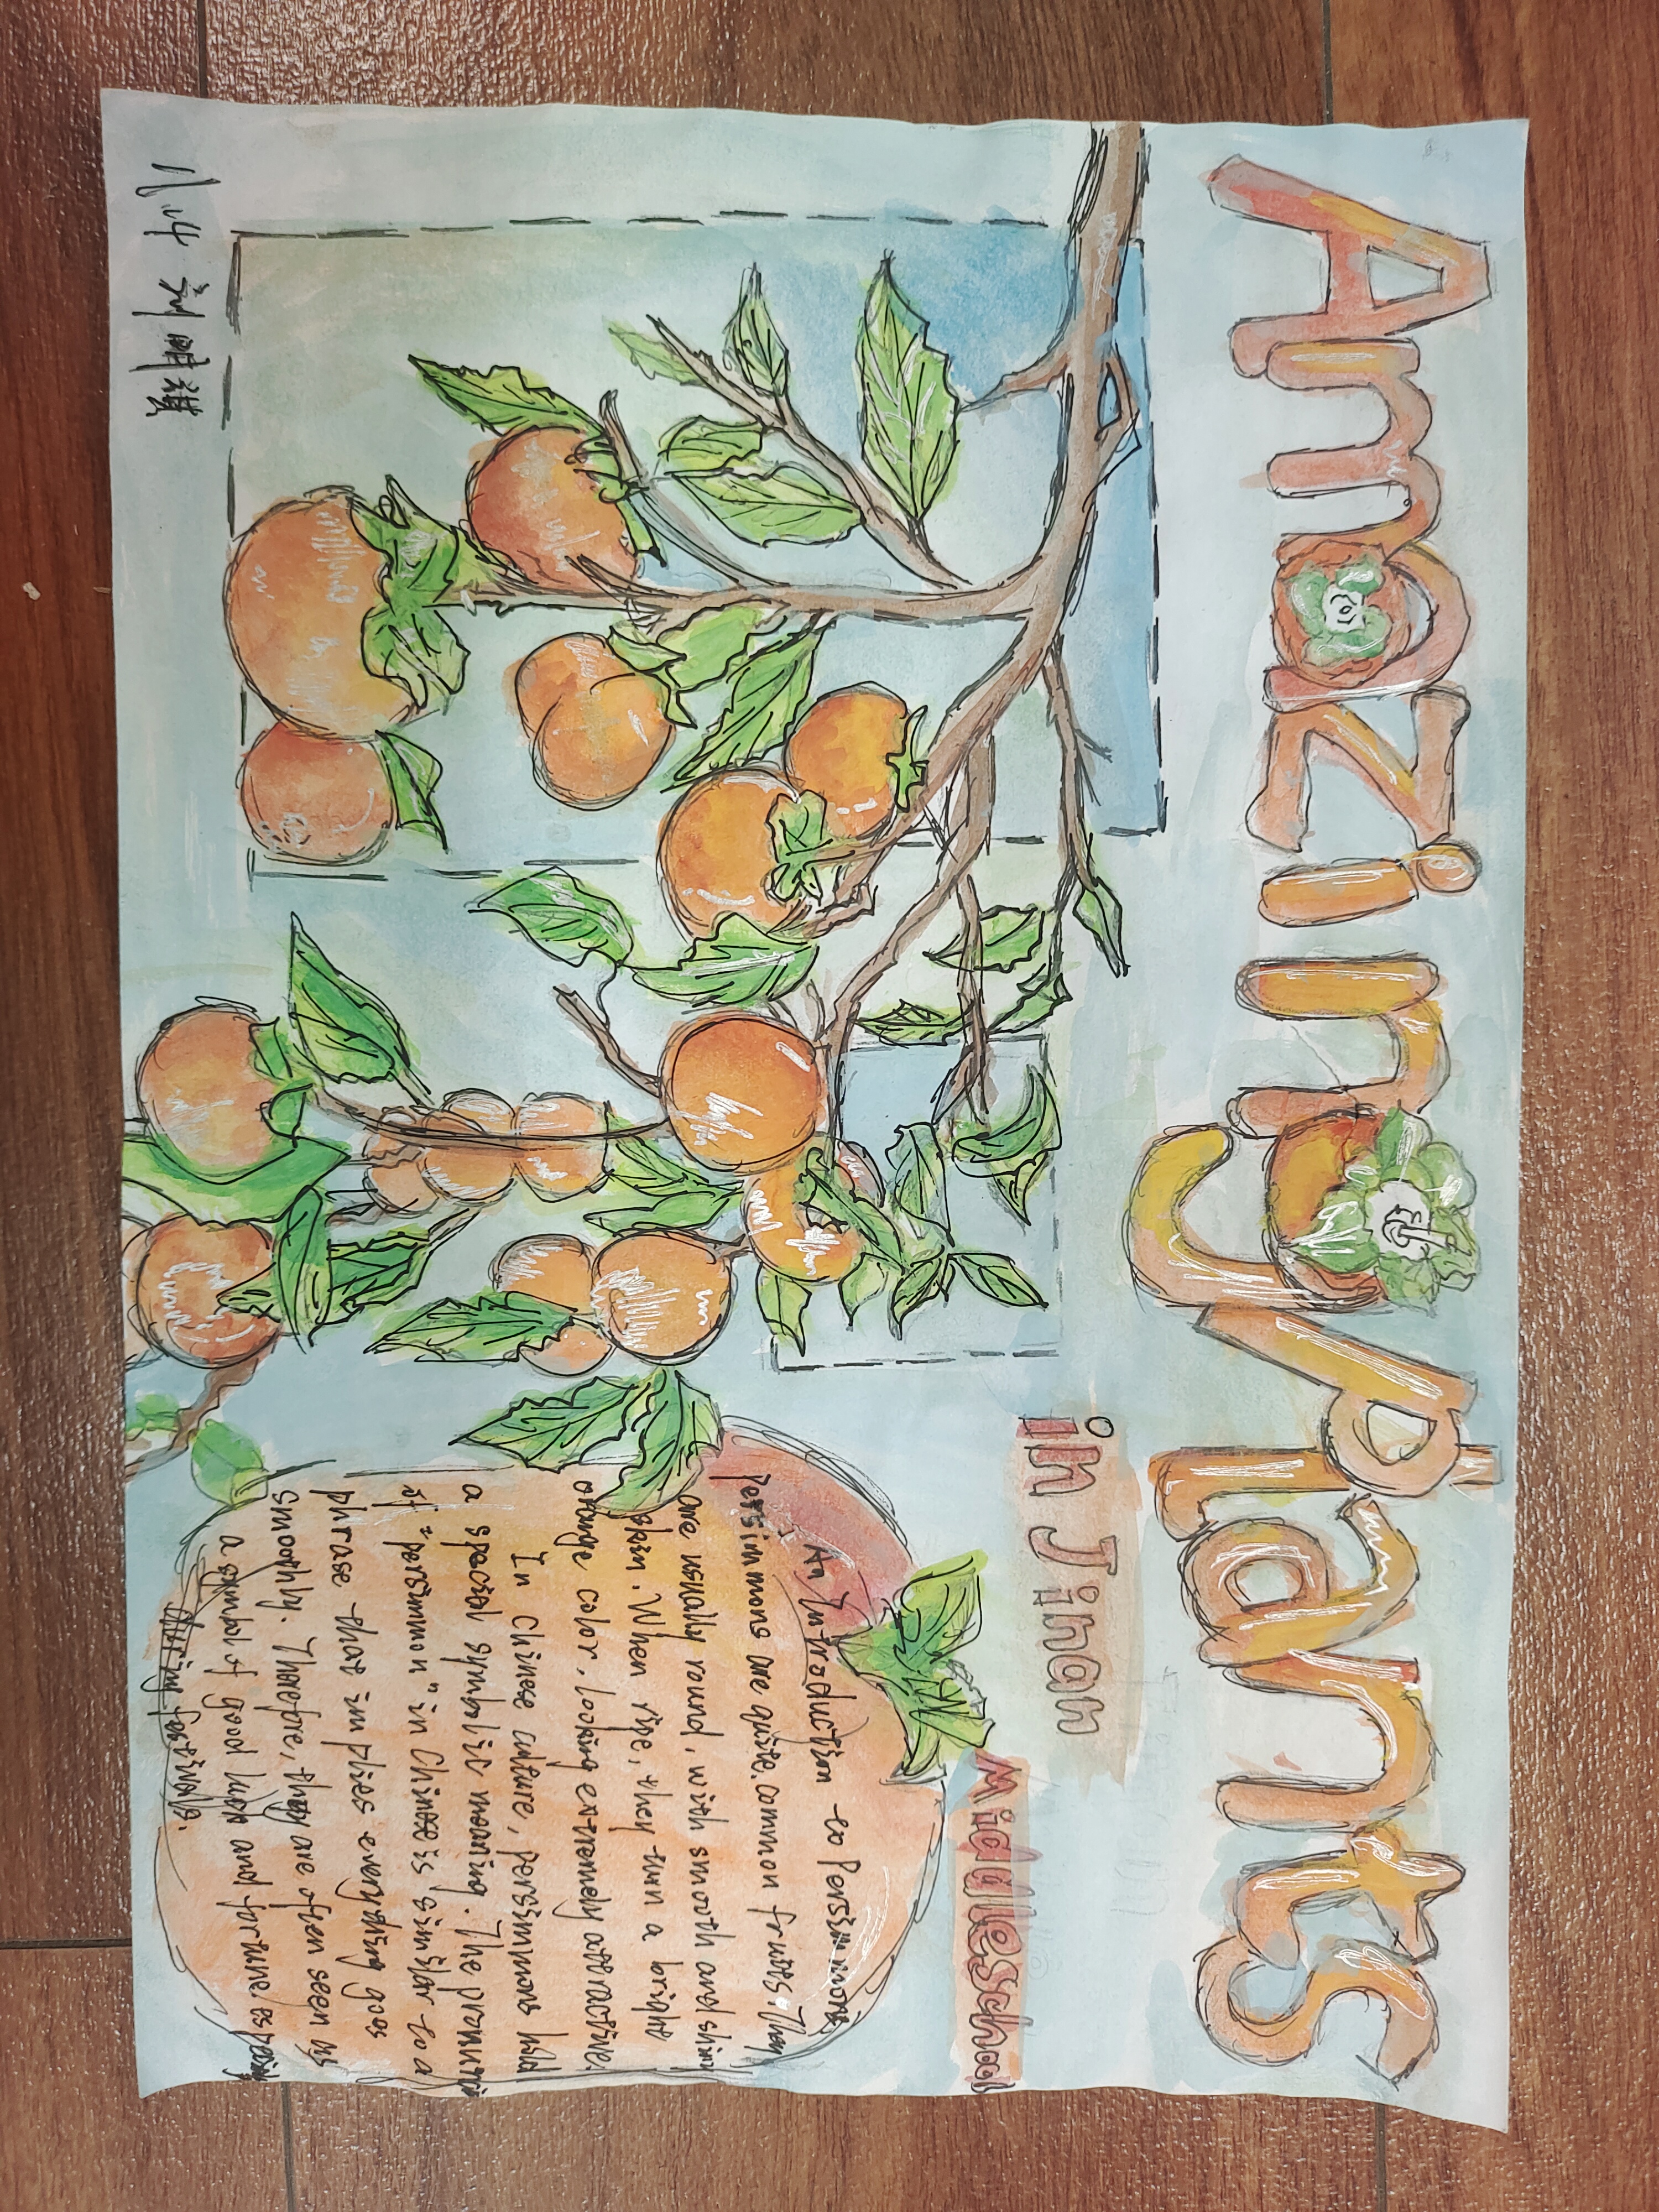 Amazing plants
in Jinan
Middle School
An Introduction to Persimmons
Persimmons are quite common fruits. They
are usually round, with smooth and shiny
skin. When ripe, they turn a bright
orange color, looking extremely attractive.
In Chinese culture, persimmons hold
a special symbolic meaning. The pronunciation
of "persimmon" in Chinese is similar to a
phrase that implies everything goes
smoothly. Therefore, they are often seen as
a symbol of good luck and fortune especially
during festivals.
八.4